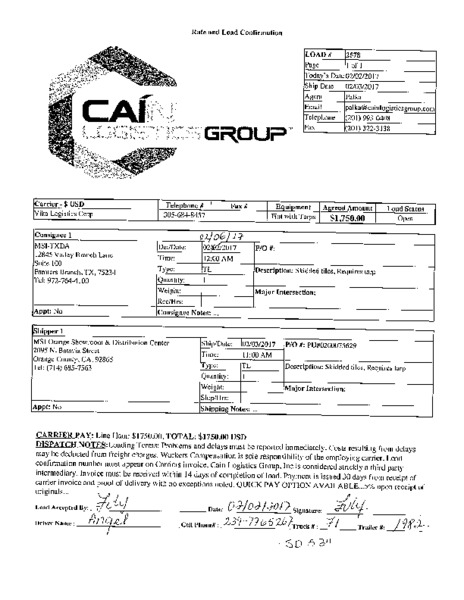 Rate and Load Confirmation
LOAD # 2578
Page 1 of 1
Today's Date 02/02/2017
Ship Date 02/03/2017
Agent Palka
Email palka@cainlogisticsgroup.com
Telephone
Fax (201) 322-3138
CAIN
LOGISTICS GROUP
Carrier - $ USD Telephone # Fax # Equipment Agreed Amount Load Status
Vita Logistics Corp Flat with Tarps $1,750.00 Open
Consignee 1 02/06/17
MSI-TXDA Del/Date: 2017 P/O #:
Valley Branch Lane Time: 12:00 AM
Suite 100 Type: TL Description: Skidded tiles, Requires tarp
Farmers Branch, TX, 75234 Quantity: 1
Weight: Major Intersection:
Rec/Hrs:
Appt: No Consignee Notes: ...
Shipper 1
MSI Orange Showroom & Distribution Center Ship/Date: 02/03/2017 P/O #: PU#0200073629
2095 N. Batavia Street Time: 11:00 AM
Orange County, CA, 92865 Type: TL Description: Skidded tiles, Requires tarp
Tel: (714) 685-7563 Quantity: 1
Weight: Major Intersection:
Ship/Hrs:
Appt: No Shipping Notes: ...
CARRIER PAY: Line Haul: $1750.00, TOTAL: $1750.00 USD
DISPATCH NOTES: Loading Terms: Problems and delays must be reported immediately. Costs resulting from delays
may be deducted from freight charges. Workers Compensation is sole responsibility of the employing carrier. Load
confirmation number must appear on Carriers invoice. Cain Logistics Group, Inc is considered strickly a third party
intermediary. Invoice must be received within 14 days of completion of load. Payment is issued 30 days from receipt of
carrier invoice and proof of delivery with no exceptions noted. QUICK PAY OPTION AVAILABLE...5% upon receipt of
originals...
Load Accepted By: Date: 02/02/2017 Signature:
Driver Name: Angel Cell Phone#: 239-7765267 Truck #: 71 Trailer #: 1982